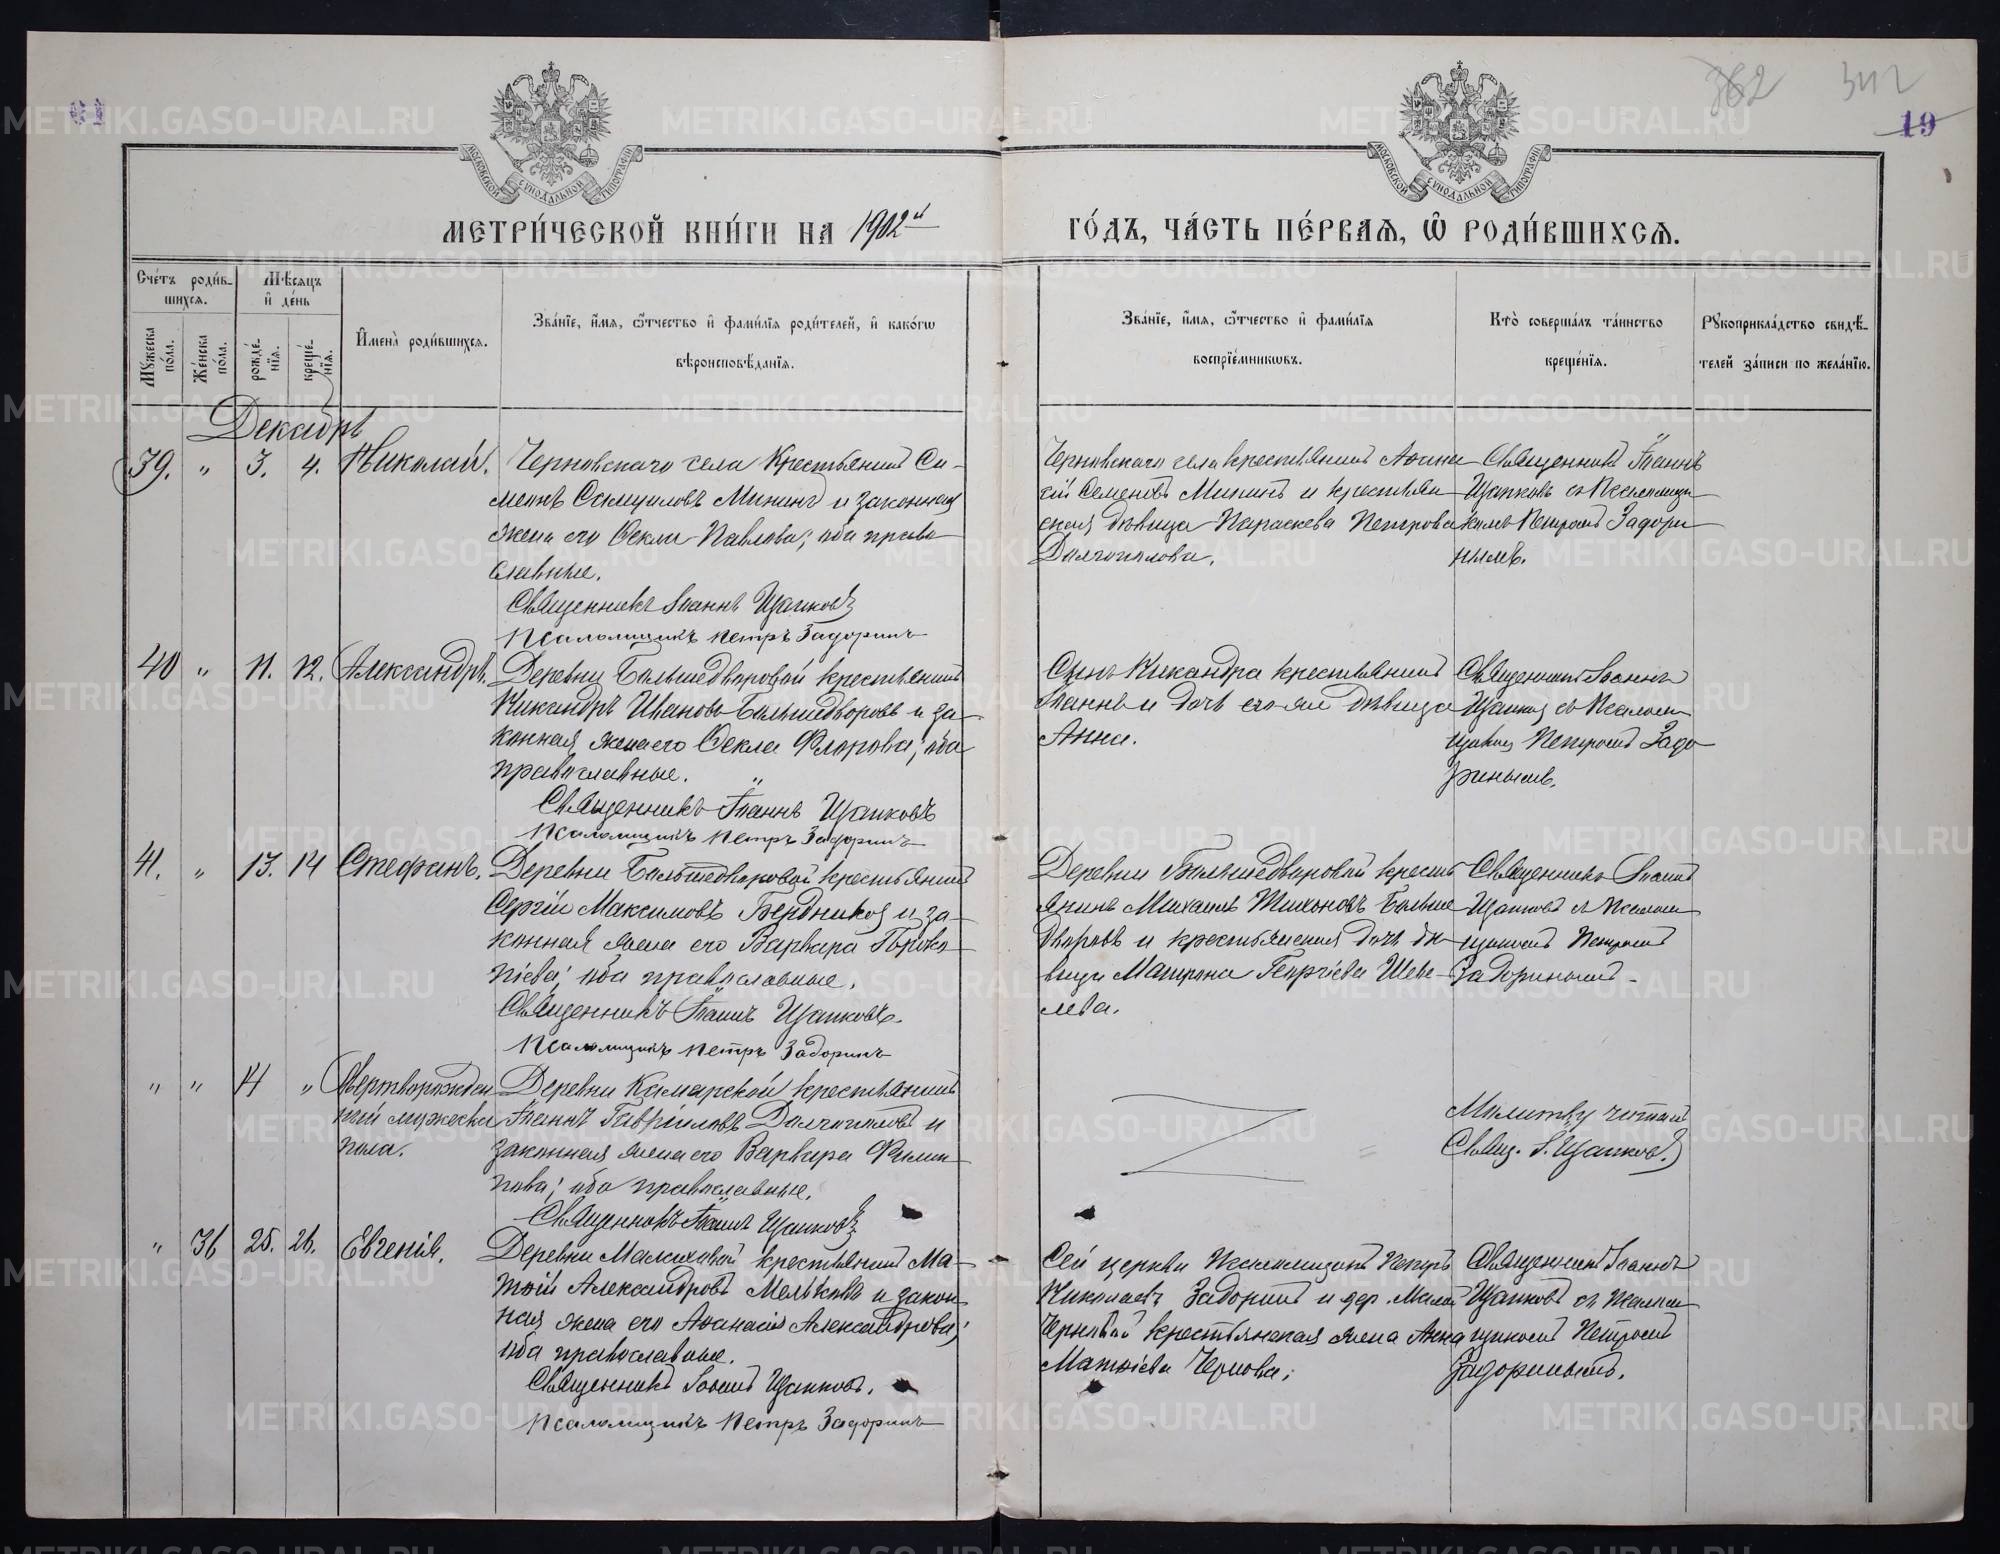 362 342
19
МОСКОВСКОЙ СѴНОДАЛЬНОЙ ТИПОГРАФІИ
МОСКОВСКОЙ СѴНОДАЛЬНОЙ ТИПОГРАФІИ
МЕТРИ́ЧЕСКОЙ КНИ́ГИ НА 1902й ГО́ДЪ, ЧА́СТЬ ПЕ́РВАѦ, Ѽ РОДИ́ВШИХСѦ.
Сче́тъ роди́в-
шихсѧ.
Мꙋжеска по́ла.
Же́нска по́ла.
Мѣ́сѧцъ и҆ де́нь
рожде́-нїѧ.
креще́-нїѧ.
И҆мена̀ роди́вшихсѧ.
Зва́нїе, и҆́мѧ, ѻ҆́тчество и҆ фами́лїѧ роди́телей, и҆ како́гѡ
вѣроисповѣ́данїѧ.
Зва́нїе, и҆́мѧ, ѻ҆́тчество и҆ фами́лїѧ
воспрїе́мникѡвъ.
Кто̀ соверша́лъ та́инство
креще́нїѧ.
Рꙋкоприкла́дство свидѣ́-
телей за́писи по жела́нїю.
Декабрь
39. " 3. 4. Николай.
Черновскаго села Крестьянинъ Си-
меонъ Мининъ и законная
жена его Ѳекла Павлова; оба право
славные.
Священникъ Іоаннъ Щапковъ
Псаломщикъ Петръ Задоринъ
Черновскаго села крестьянинъ Аѳана
сій Семеновъ Мининъ и крестьян
ская дѣвица Параскева Петрова
Долгополова.
Священникъ Іоаннъ
Щапковъ съ Псаломщи
комъ Петромъ Задори
нымъ.
40 " 11. 12. Александръ.
Деревни Большедворовой крестьянинъ
Никандръ Ивановъ Большедворовъ и за-
конная жена его Ѳекла Флорова; оба
православные.
Священникъ Іоаннъ Щапковъ
Псаломщикъ Петръ Задоринъ
Сынъ Никандра крестьянинъ
Іоаннъ и дочь его дѣвица
Анна.
Священникъ Іоаннъ
Щапковъ съ Псалом
щикомъ Петромъ Задо
ринымъ.
41. " 13. 14 Стефанъ.
Деревни Большедворовой крестьянинъ
Сергій Максимовъ Бердниковъ и за-
конная жена его Варвара Проко
піева; оба православные.
Священникъ Іоаннъ Щапковъ.
Псаломщикъ Петръ Задоринъ
Деревни Большедворовой кресть
янинъ Михаилъ Тихоновъ Больше
дворовъ и крестьянская дочь дѣ-
вица Матрона Георгіева Шеве-
лева.
Священникъ Іоаннъ
Щапковъ съ Псалом
щикомъ Петромъ
Задоринымъ.
" " 14 " Мертворожден
ный мужеска
пола.
Деревни Комарской крестьянинъ
Іоаннъ Гавріиловъ Долгополовъ и
законная жена его Варвара Филип
пова; оба православные.
Священникъ Іоаннъ Щапковъ
Молитву читалъ
Свящ. І. Щапковъ.
" 36 25. 26. Евгенія.
Деревни крестьянинъ Ма-
тѳій Александровъ Мельковъ и закон
ная жена его Аѳанасія Александрова;
оба православные.
Священникъ Іоаннъ Щапковъ.
Псаломщикъ Петръ Задоринъ
Сей церкви Псаломщикъ Петръ
Николаевъ Задоринъ и дер. Мало
Черновой крестьянская жена Анна
Матѳіева Чернова;
Священникъ Іоаннъ
Щапковъ съ Псалом
щикомъ Петромъ
Задоринымъ.
METRIKI.GASO-URAL.RU